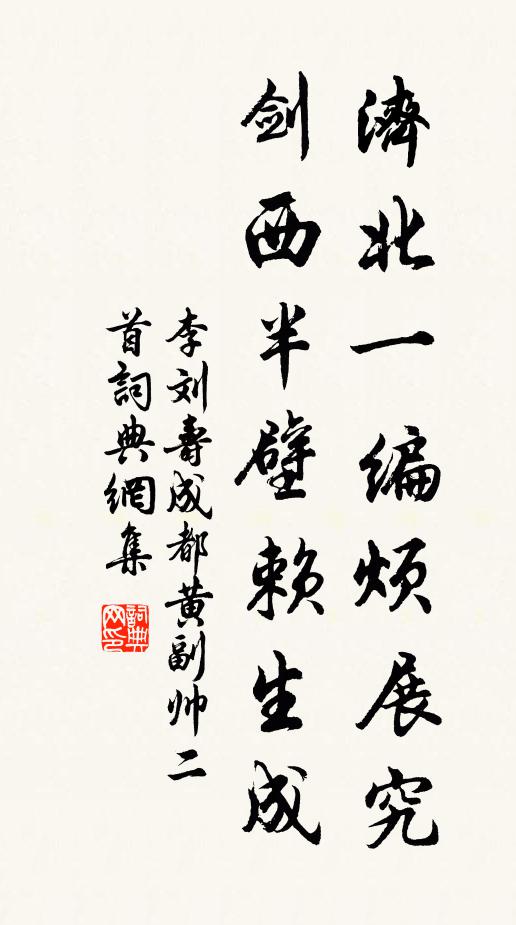 濟北一编烦展究
剑西半壁赖生成
李刘壽成都黄副帅二
首詞典網集
詞典
网印